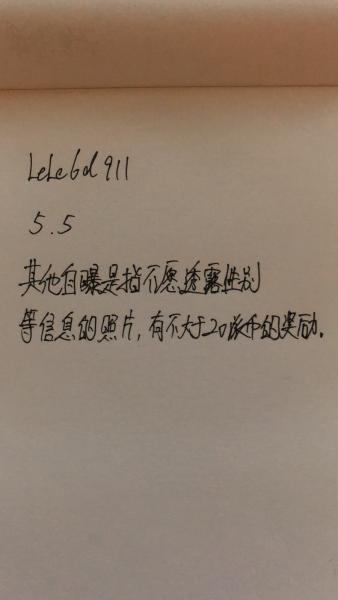 LeLe6d911
5.5
其他自曝是指不愿透露性别
等信息的照片，有不大于20派币的奖励。